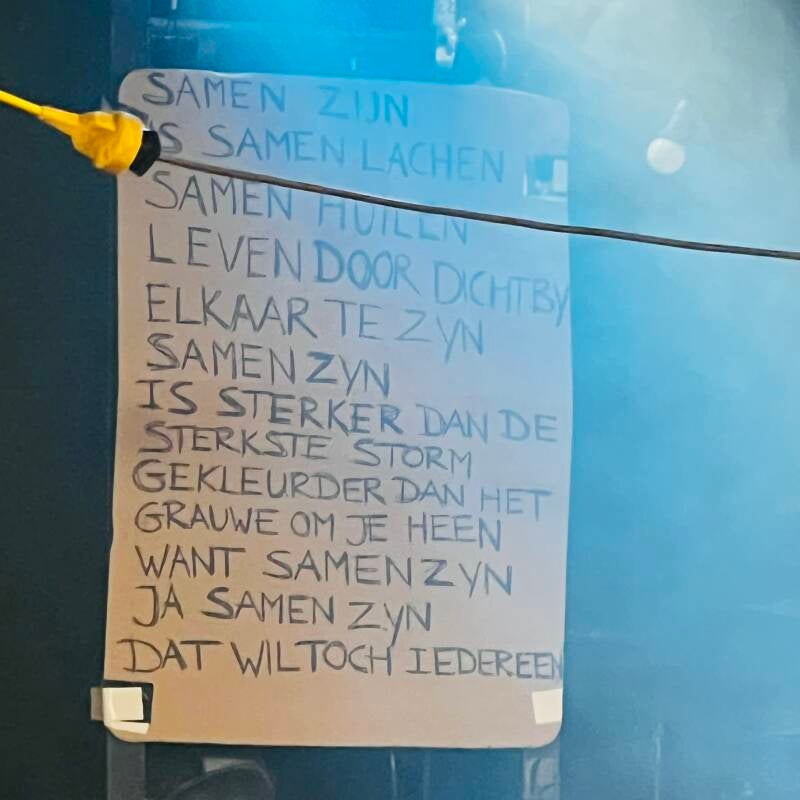 SAMEN ZIJN
IS SAMEN LACHEN
SAMEN HUILEN
LEVEN DOOR DICHTBY
ELKAAR TE ZYN
SAMEN ZYN
IS STERKER DAN DE
STERKSTE STORM
GEKLEURDER DAN HET
GRAUWE OM JE HEEN
WANT SAMEN ZYN
JA SAMEN ZYN
DAT WIL TOCH IEDEREEN